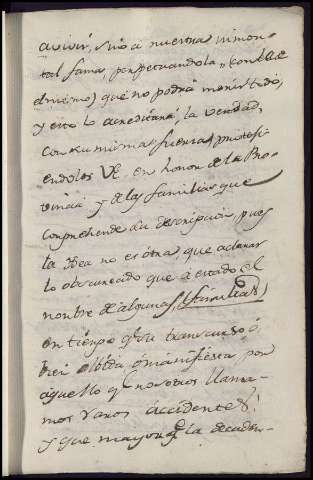 avivir, sino a nuestra inmor-
tal fama, perpetuandola, (con la de
el mismo) que no podrá
y esto lo acreditará, la verdad,
con sus mismas fuerzas protexi-
endolos VE. en honor de la Pro-
vincia y de las familias que
comprehende su descripcion, pues
la Ydea no es otra, que aclarar
lo obscureado que á estado el
nombre de algunas, (familias)
en tiempo qe su transcurso, ó,
bien olbida ó manifiesta por
aquello qe nosotros llama-
mos varios accidentes!
y que mayor qe la decaden-